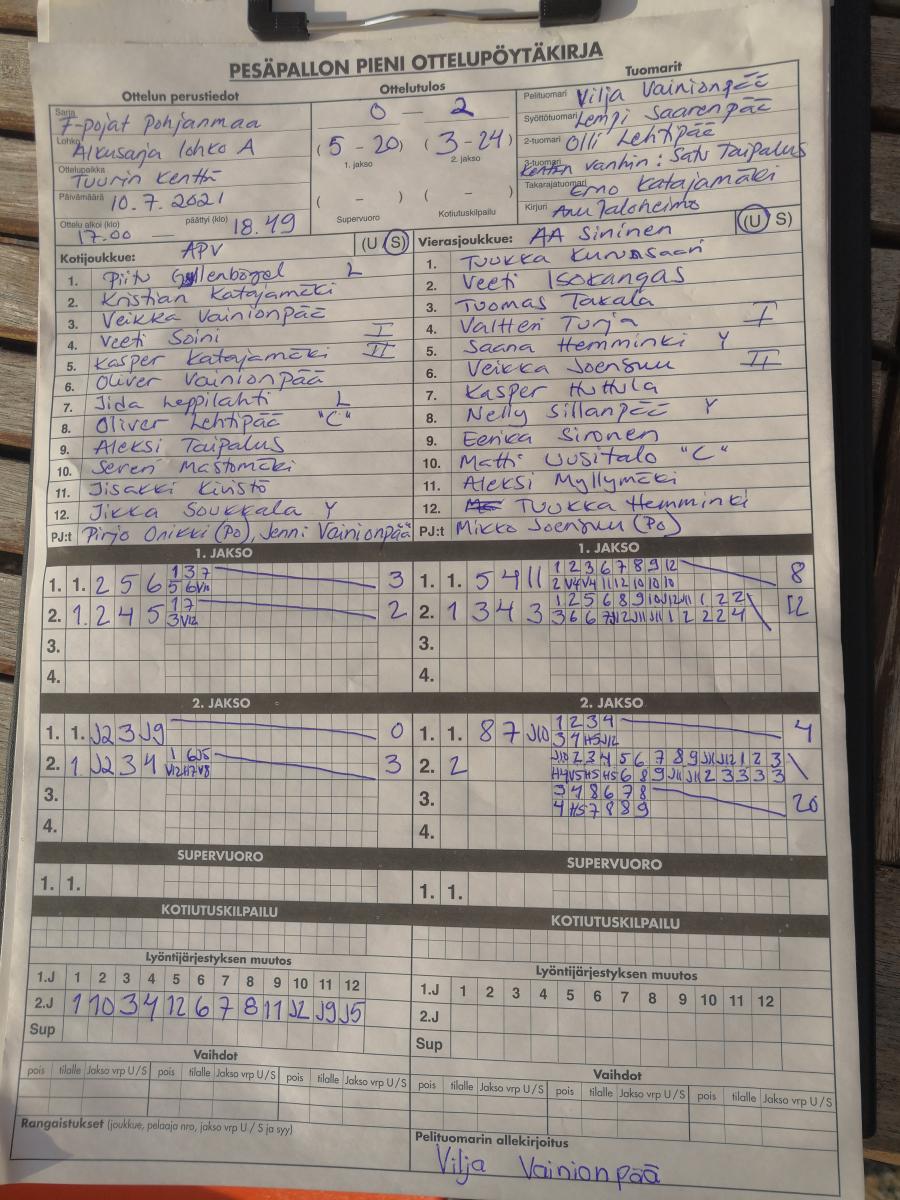 PESÄPALLON PIENI OTTELUPÖYTÄKIRJA
Ottelun perustiedot
Sarja F-pojat Pohjanmaa
Lohko Alkusarja lohko A
Ottelupaikka Tuurin Kenttä
Päivämäärä 10.7.2021
Ottelu alkoi (klo) 17.00 päättyi (klo) 18.49
Ottelutulos
0 – 2
(5 - 20) (3 - 24)
1. jakso 2. jakso
( - ) ( - )
Supervuoro Kotiutuskilpailu
Tuomarit
Pelituomari Vilja Vainionpää
Syöttötuomari Lempi Saarenpää
2-tuomari Olli Lehtipää
3-tuomari Kentän vanhin: Satu Taipalus
Takarajatuomari Erno Katajamäki
Kirjuri Anu Jaloheimo
Kotijoukkue: APV (U S)
1. Piitu Gyllenbögel L
2. Kristian Katajamäki
3. Veikka Vainionpää
4. Veeti Soini I
5. Kasper Katajamäki II
6. Oliver Vainionpää
7. Jida Leppilahti L
8. Oliver Lehtipää "C"
9. Aleksi Taipalus
10. Severi Mastomäki
11. Jisakki Kivistö
12. Jikka Soukkala Y
PJ:t Pirjo Onikki (Po), Jenni Vainionpää
Vierasjoukkue: AA Sininen (U S)
1. Tuukka
2. Veeti Isokangas
3. Tuomas Takala
4. Valtteri Turja I
5. Saana Hemminki Y
6. Veikka Joensuu II
7. Kasper Huttula
8. Nelly Sillanpää Y
9. Eerika Sironen
10. Matti Uusitalo "C"
11. Aleksi Myllymäki
12. Tuukka Hemminki
PJ:t Mikko Joensuu (Po)
1. JAKSO
1. 1. 2 5 6 1 3 7 3
5 6 V12
2. 1. 2 4 5 1 7 2
3 V12
3.
4.
1. JAKSO
1. 1. 5 4 11 1 2 3 6 7 8 9 12 8
2 V4 V4 11 12 10 10 10
2. 1 3 4 3 1 2 5 6 8 9 10 J12 J11 1 2 2 12
3 6 6 7 J12 J11 J11 1 2 2 2 4
3.
4.
2. JAKSO
1. 1. J2 3 J9 0
2. 1 J2 3 4 1 6 J5 3
V12 H7 V8
3.
4.
2. JAKSO
1. 1. 8 7 J10 1 2 3 4 4
3 4 H5 J12
2. 2 J10 2 3 4 5 6 7 8 9 J11 J12 1 2 3
H4 V5 H5 H5 6 8 9 J11 J11 2 3 3 3 3
3. 3 4 8 6 7 8 20
4 H5 7 8 8 9
4.
SUPERVUORO
1. 1.
SUPERVUORO
1. 1.
KOTIUTUSKILPAILU
KOTIUTUSKILPAILU
Lyöntijärjestyksen muutos
1.J 1 2 3 4 5 6 7 8 9 10 11 12
2.J 1 10 3 4 12 6 7 8 11 J2 J9 J5
Sup
Lyöntijärjestyksen muutos
1.J 1 2 3 4 5 6 7 8 9 10 11 12
2.J
Sup
Vaihdot
pois tilalle Jakso vrp U/S pois tilalle Jakso vrp U/S pois tilalle Jakso vrp U/S
Vaihdot
pois tilalle Jakso vrp U/S pois tilalle Jakso vrp U/S pois tilalle Jakso vrp U/S
Rangaistukset (joukkue, pelaaja nro, jakso vrp U / S ja syy)
Pelituomarin allekirjoitus
Vilja Vainionpää